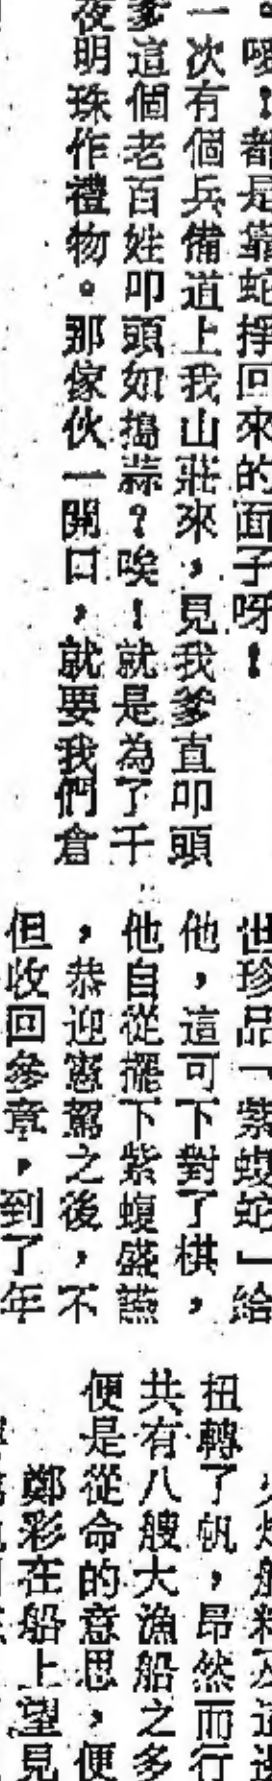 。噯！都是靠蛇掙回來的面子呀！
一次有個兵備道上我山莊來，見我爹直叩頭
爹這個老百姓叩頭如搗蒜？唉！就是為了千
夜明珠作禮物。那傢伙一開口，就要我們倉
世珍品「紫蝮蛇」給
他，這可下對了棋，
他自從擺下紫蝮盛讌
，恭迎憲駕之後，不
但收回參章，到了年
扭轉了帆，昂然而行
共有八艘大漁船之多
便是從命的意思，便
鄭彩在船上望見